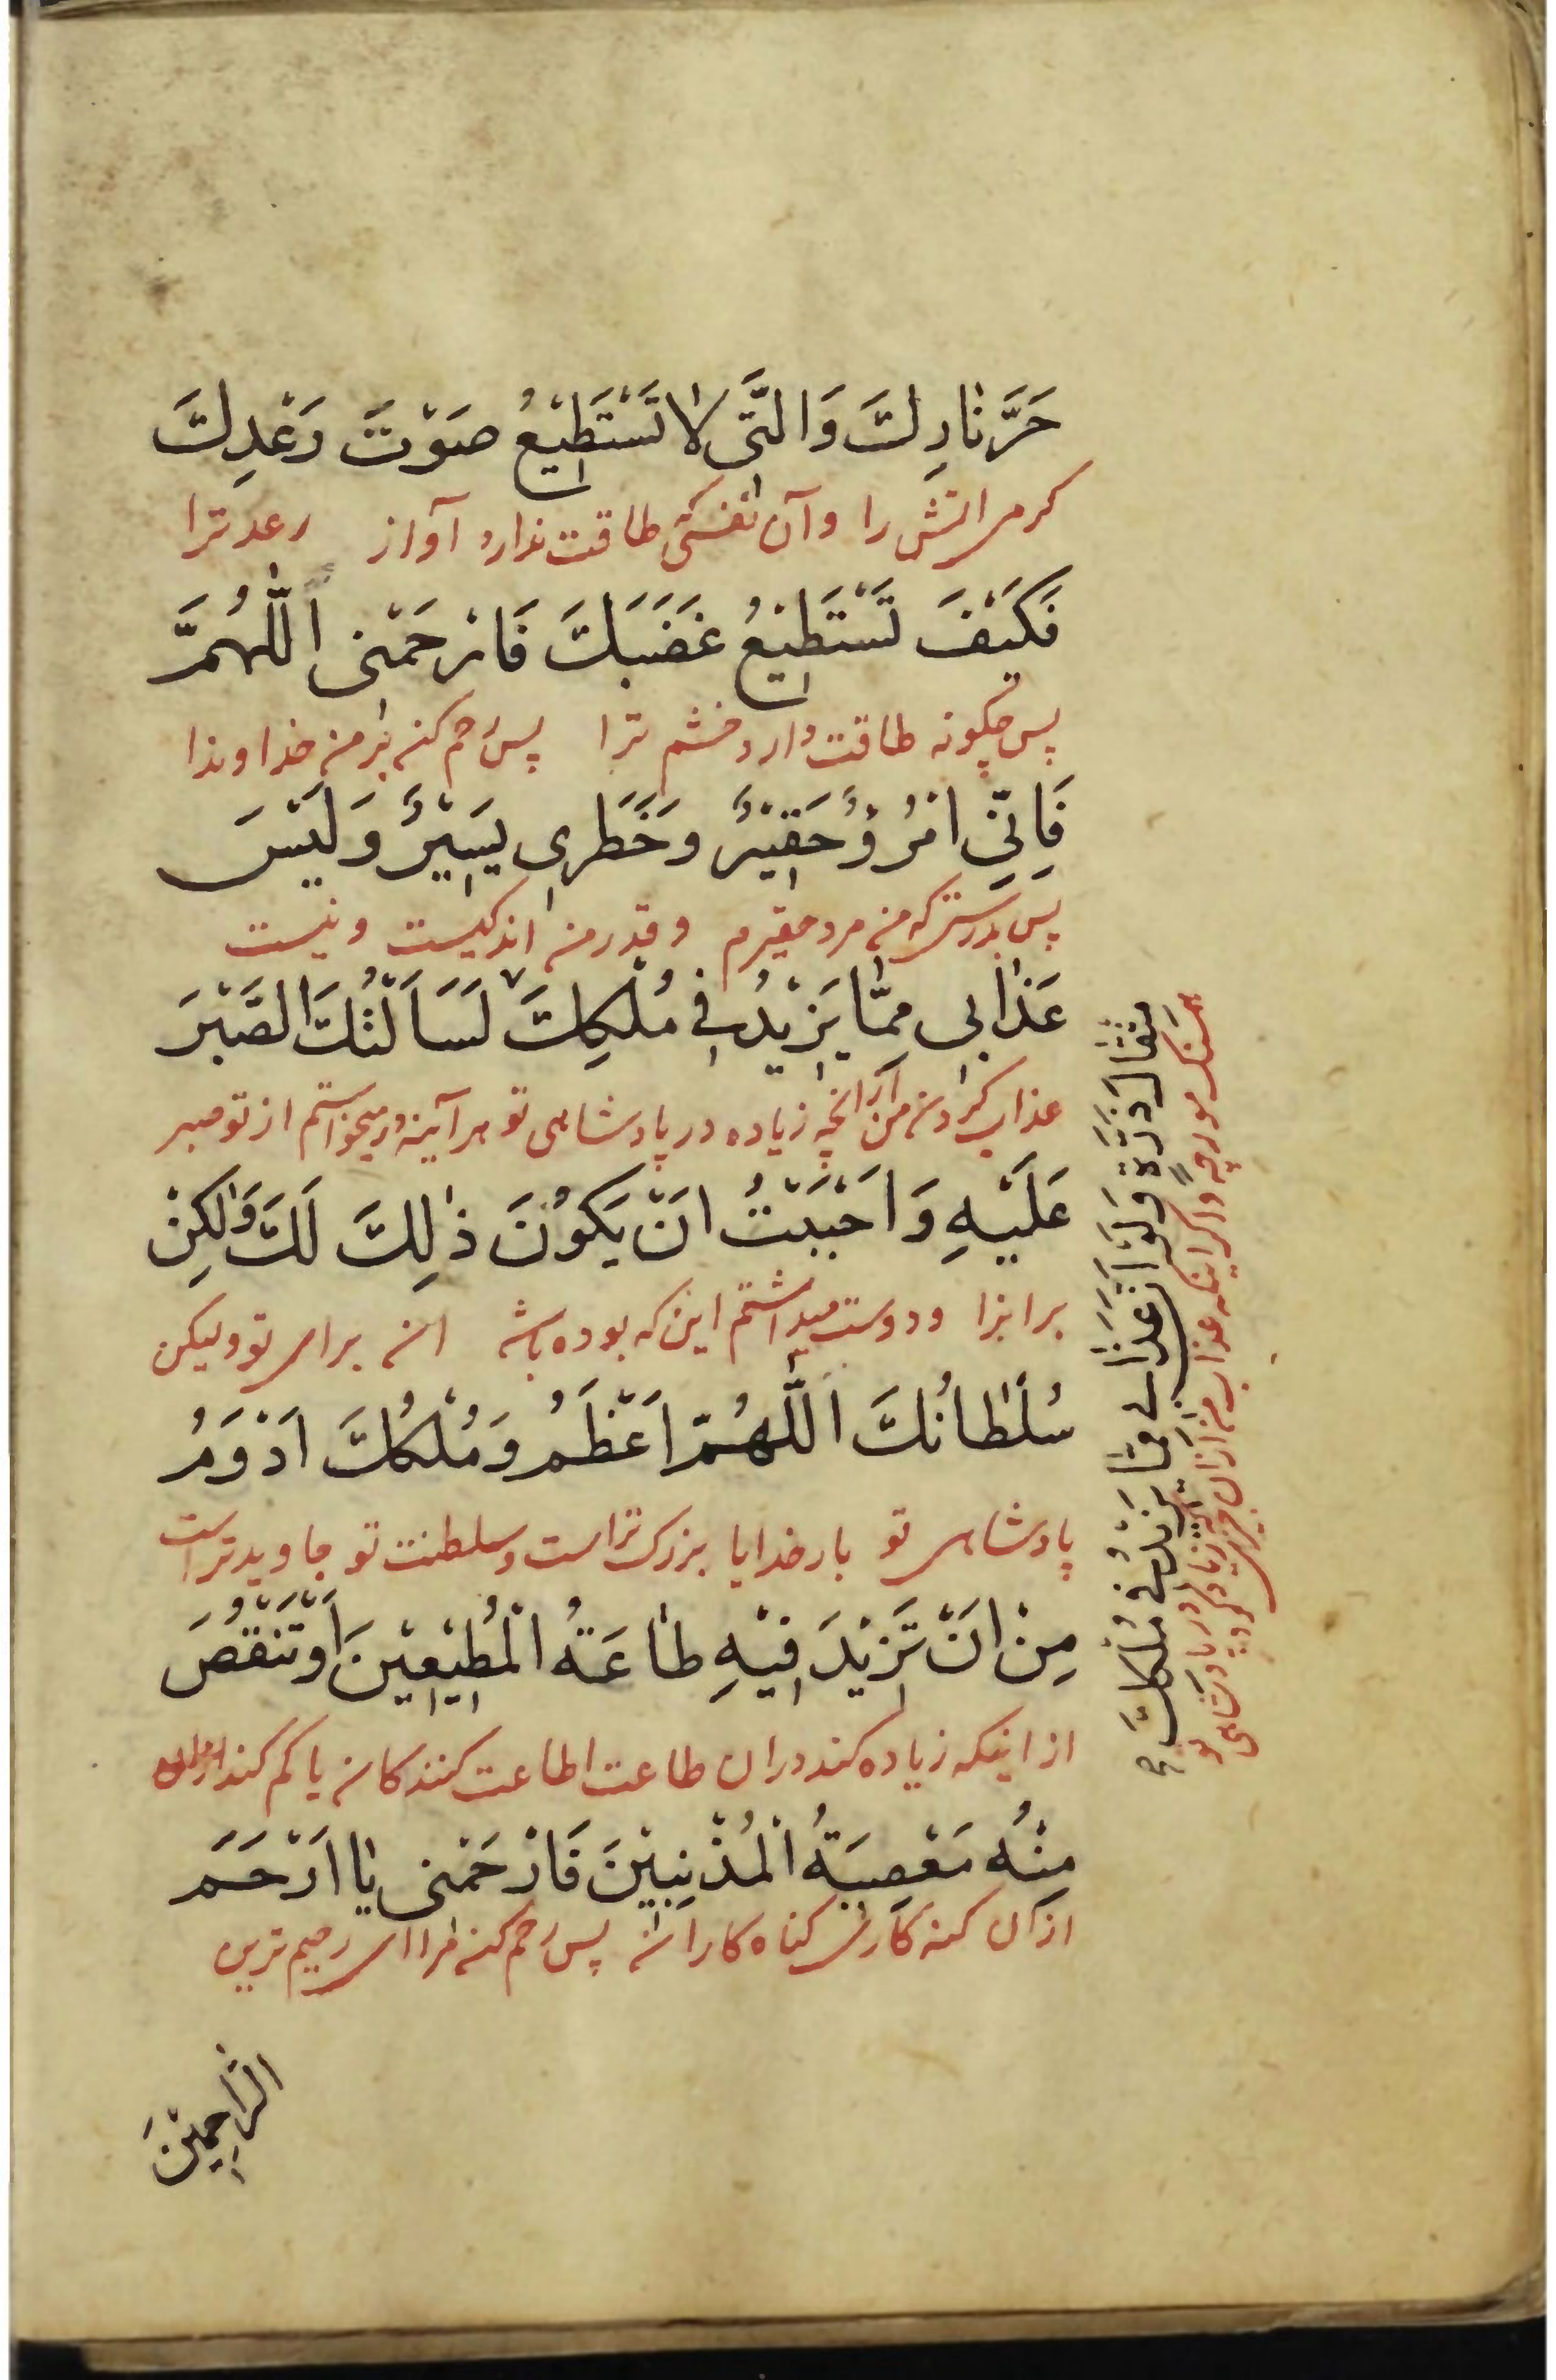 حَرَّ نَارِكَ وَالَّتی لَا تَسْتَطِیْعُ صَوْتَ رَعْدِكَ
کرمی اتش را وآن نفسی که طاقت ندارد آواز رعد ترا
فَکَیْفَ تَسْتَطِیْعُ غَضَبَكَ فَارْحَمْنی اَللّٰهُمَّ
پس چکونه طاقت دارد خشم ترا پس رحم کن بر من خداوندا
فَاِنّیِ امْرُؤٌ حَقِیْرٌ وَخَطَری یَسِیْرٌ وَلَیْسَ
پس بدرستی که من مرد حقیرم وقدر من اندکیست ونیست
عَذَابی مِمَّا یَزِیْدُ فی مُلْکِكَ ٧ لَسَاَلْتُكَ الصَّبْرَ
عذاب کردن من از انچه زیاده در پادشاهی تو هرآینه میخواستم از تو صبر
عَلَیْهِ وَاَحْبَبْتُ اَنْ یَکُوْنَ ذٰلِكَ لَكَ وَلٰکِنْ
برابرا ودوست میداشتم این که بوده باشد ان برای تو ولیکن
سُلْطَانُكَ اَللّٰهُمَّ اَعْظَمُ وَمُلْكُكَ اَدْوَمُ
پادشاهی تو بار خدایا بزرک تراست وسلطنت تو جاویدتر است
مِنْ اَنْ تَزِیْدَ فِیْهِ طَاعَةُ الْمُطِیْعِیْنَ اَوْتَنْقُصَ
از اینکه زیاده کند دران طاعت اطاعت کنندکان یا کم کند
مِنْهُ مَعْصِیَةُ الْمُذْنِبِیْنَ فَارْحَمْنی یَا اَرْحَمَ
ازان کنه کاری کناه کاران پس رحم کن مرا ای رحیم ترین
الرَّاحِمِیْنَ
مِثْقَالَ ذَرَّةٍ وَلَوْ اَنَّ عَذَابی مِمَّا یَزِیْدُ فی مُلْکِكَ
هسنک مورچه واکر اینکه عذاب من از ان چیزی بودی
که زیاد کردی در پادشاهی تو